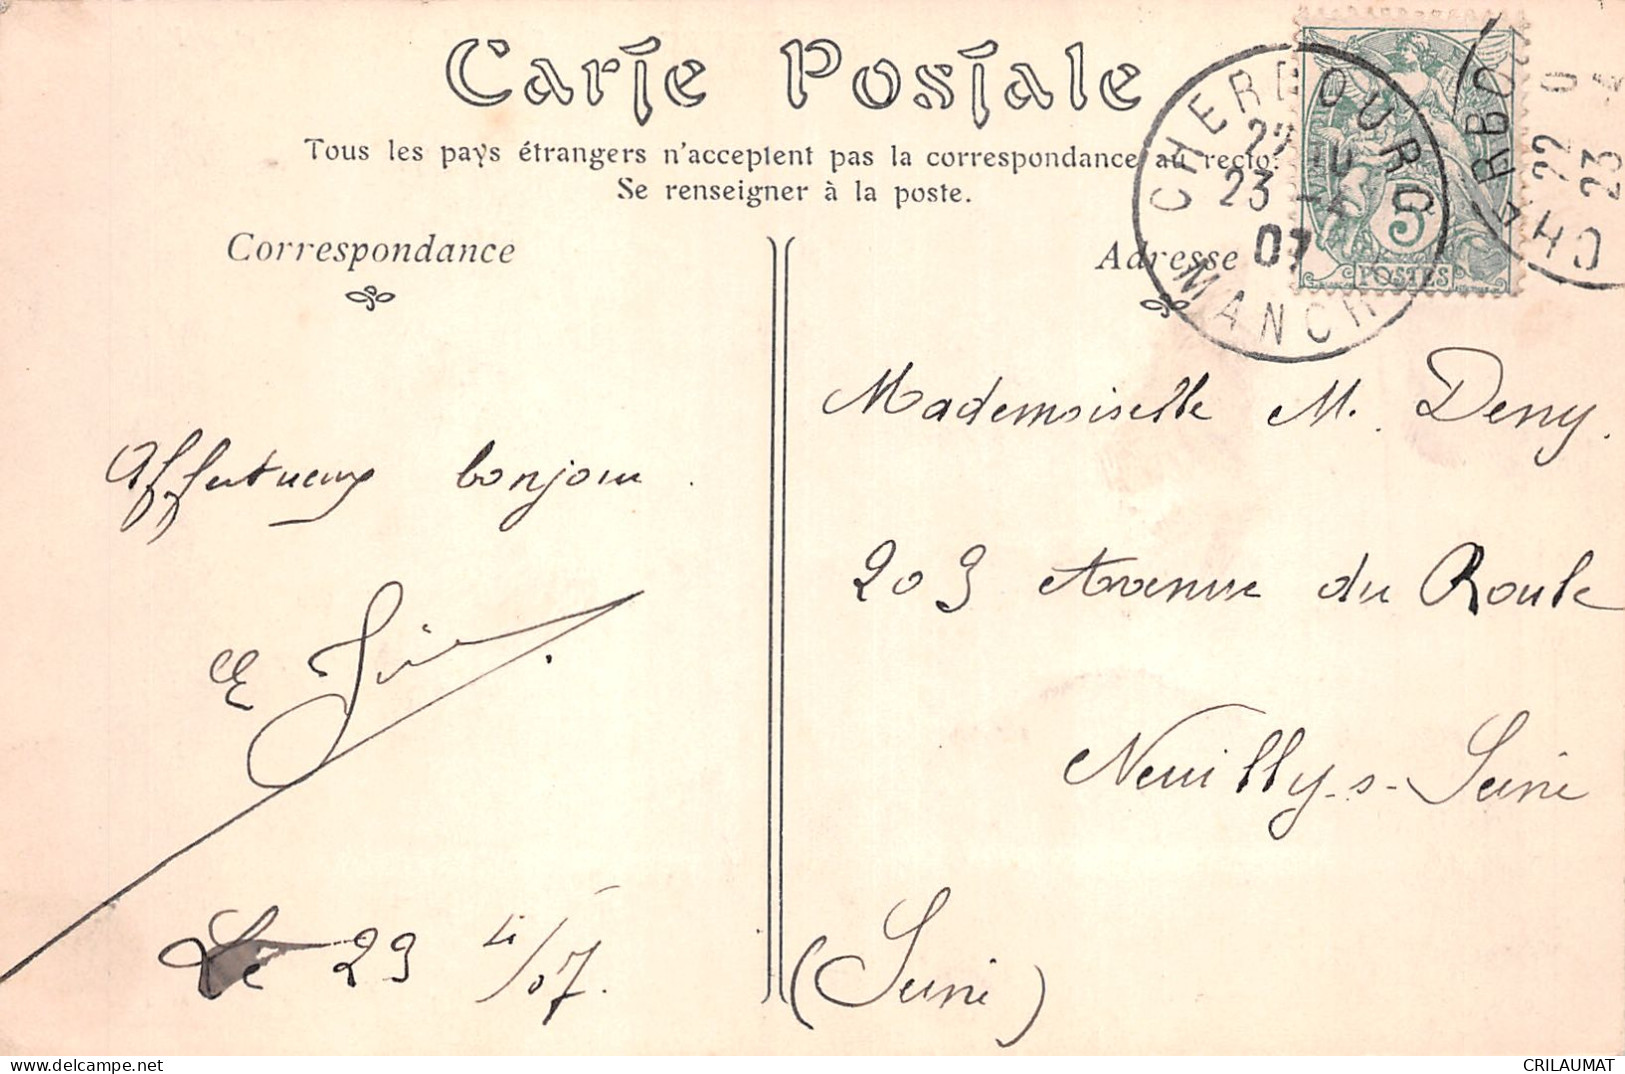 Carte Postale
Tous les pays étrangers n'acceptent pas la correspondance au recto.
Se renseigner à la poste.
Correspondance
Adresse
CHERBOURG
23
07
MANCHE
5
POSTES
22
23
Mademoiselle M. Deny.
203 Avenue du Roule
Neuilly-s-Seine
(Seine)
Affectueux bonjour.
Le 23 4/07.
www.delcampe.net
CRILAUMAT